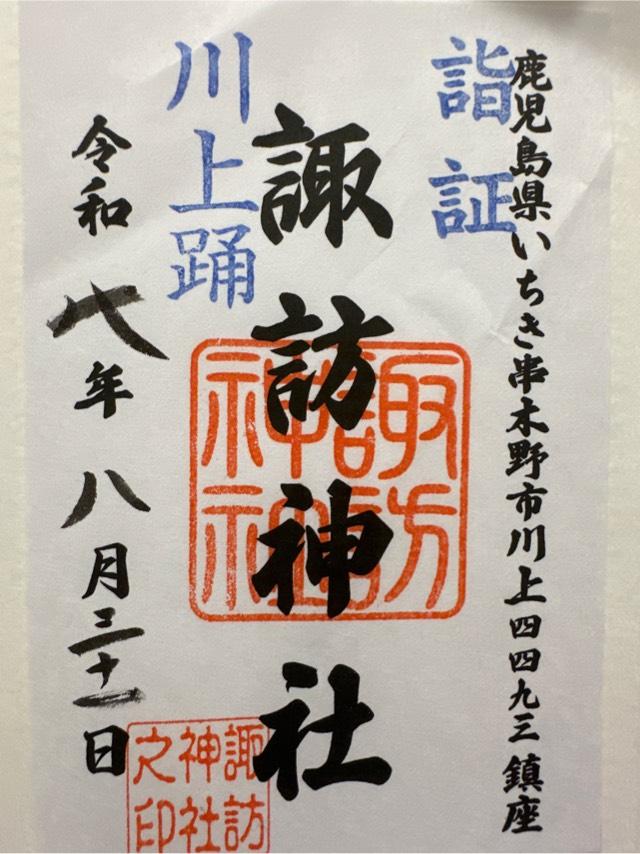 鹿児島県いちき串木野市川上四四九三鎮座
詣証
諏訪神社
川上踊
令和七年八月三十一日
諏訪神社之印